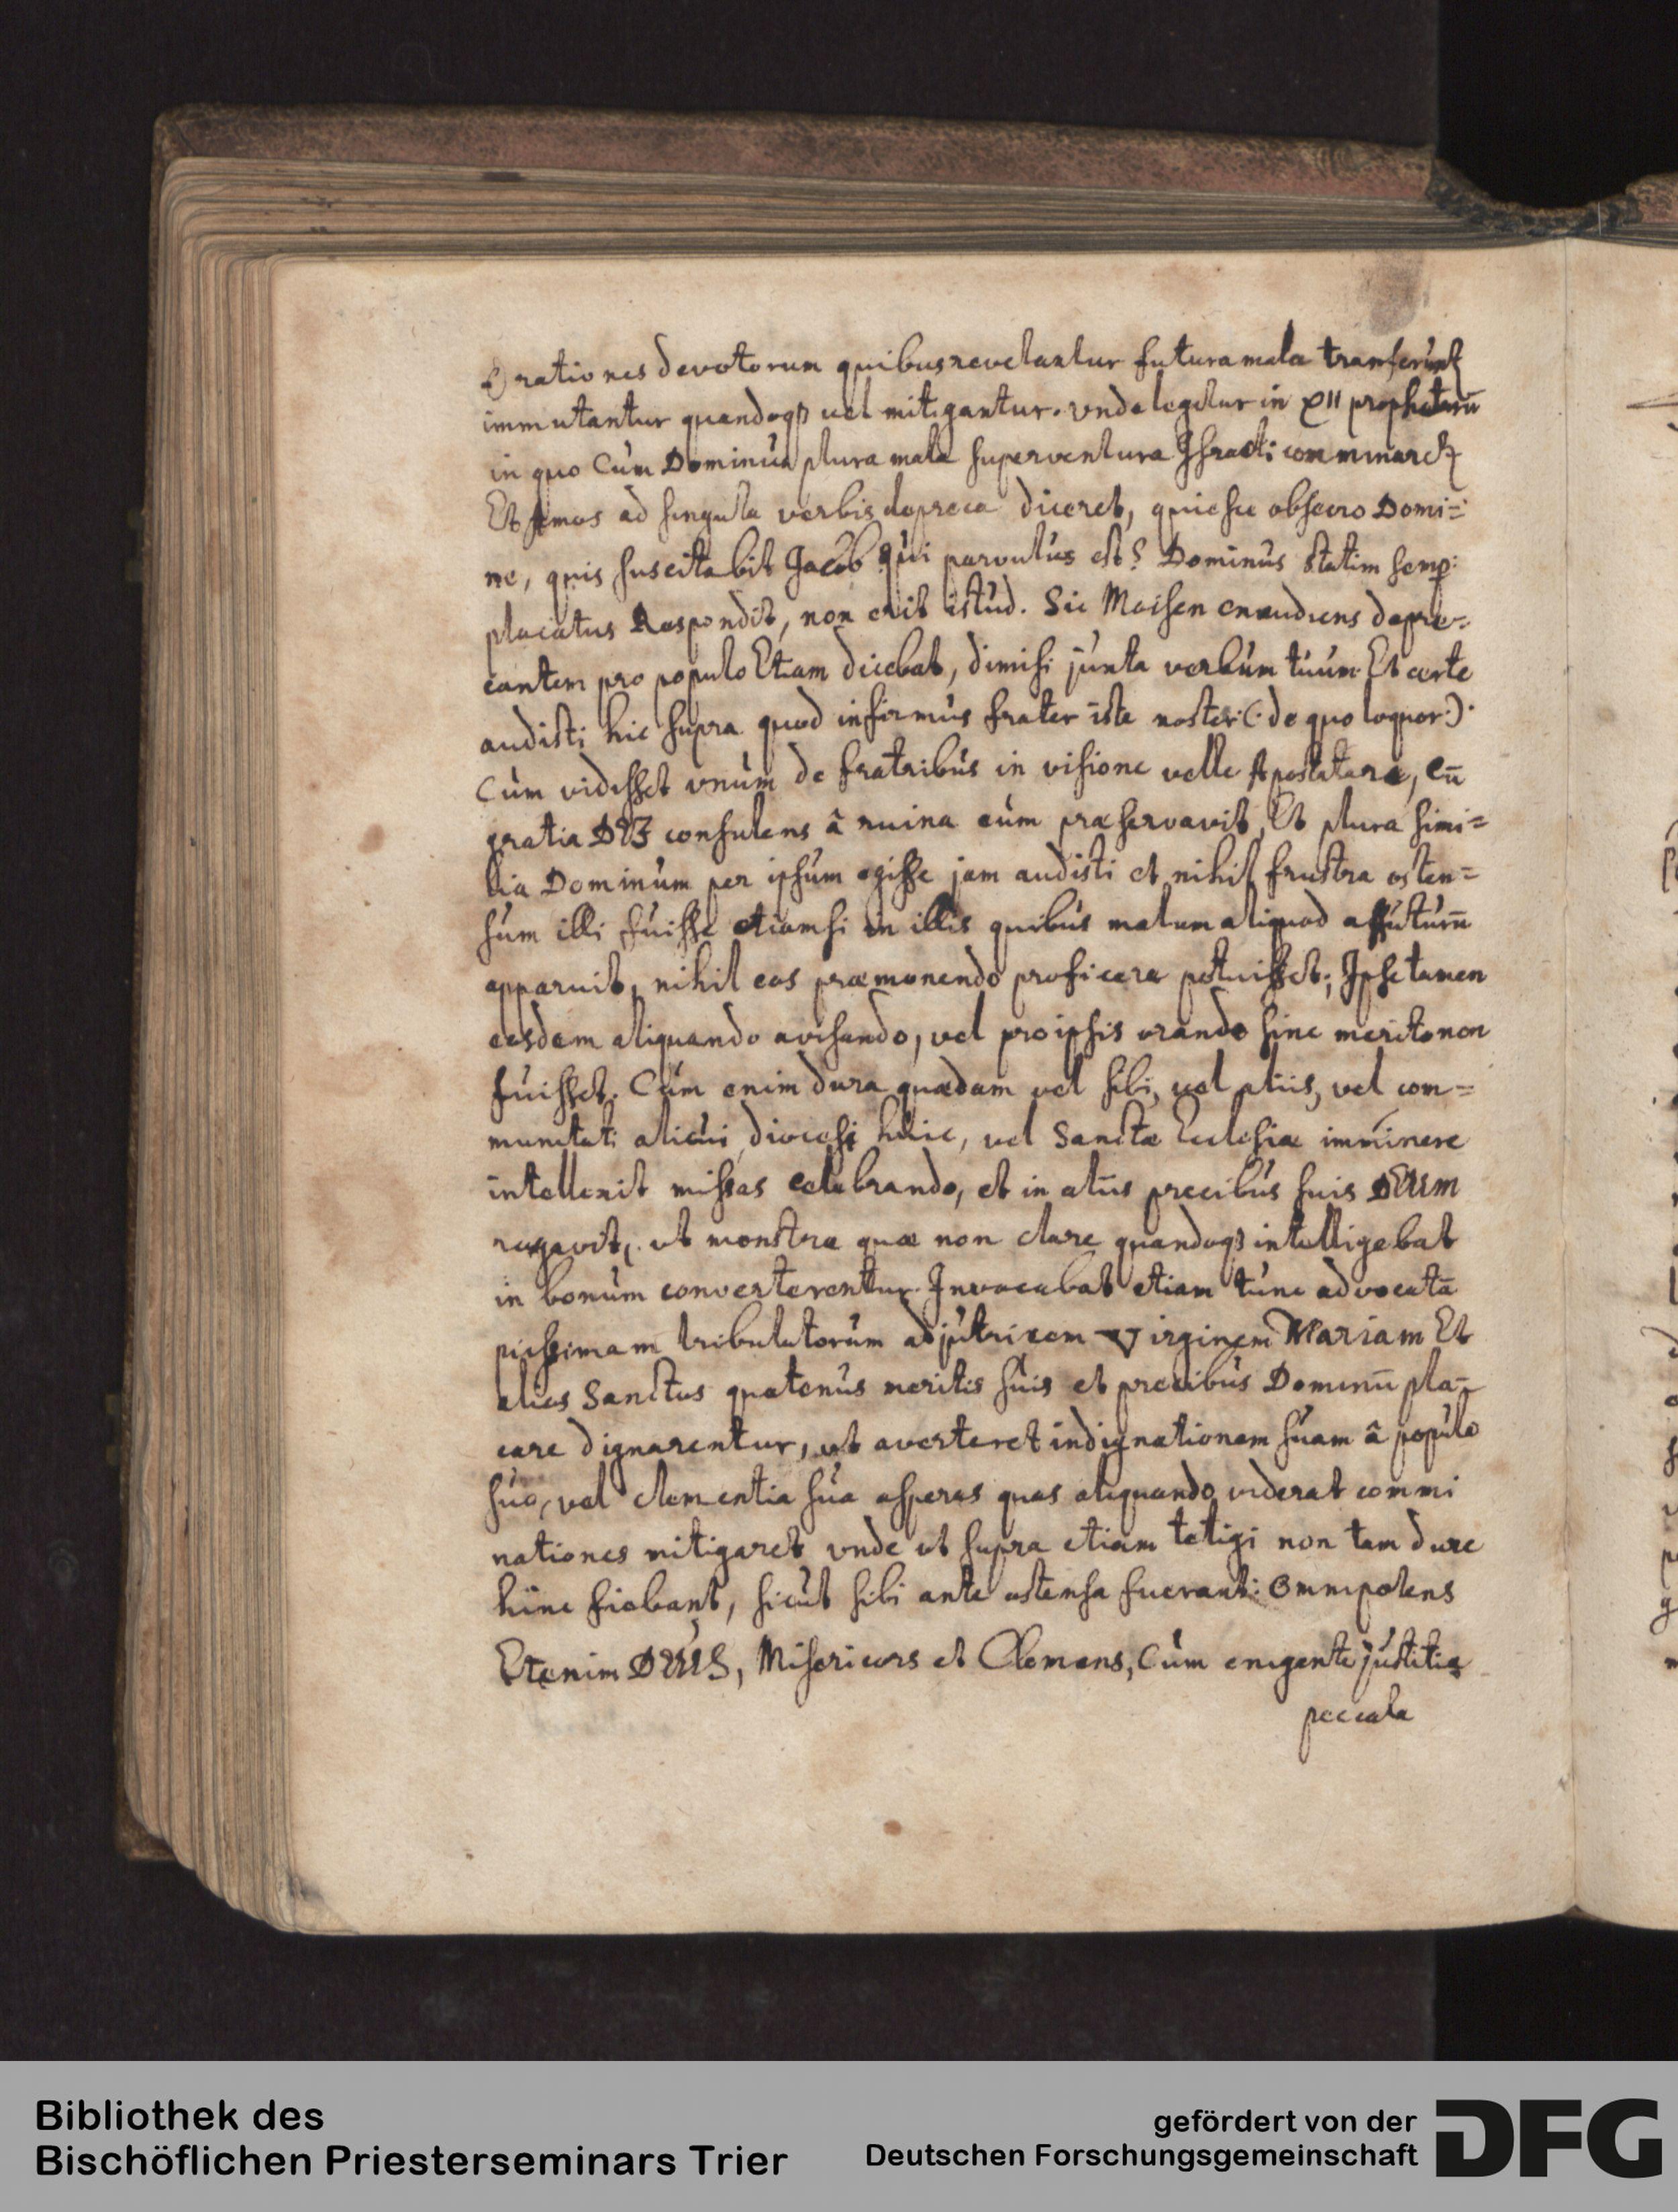 Orationes devotorum quibus revelantur futura mala tranferunt
immutantur quandoqȝ vel mitigantur. vnde legitur in XII prophetarū
in quo Cùm Dominus plura mala superventura Israeli comminaret
Et Amos ad singula verbis depreca diceret, quiesce obsecro Domi=
ne, quis suscitabit Jacob qùi parvulus est? Dominus statim semp:
placatus Respondit, non erit istud. Sic Moisen exaudiens depre=
cantem pro populo Etiam dicebat, dimisi juxta verbùm tuùm Et certe
audisti hic supra quod infirmùs frater iste noster (: de quo loquor:)
Cùm vidisset vnùm de fratribùs in visione velle Apostatare, Cū
gratia DEI consulens â ruina eùm præservavit, Et plura simi=
lia Dominùm per ipsùm egisse jam audisti et nihil frustra osten=
sùm illi fùisse etiamsi in illis quibùs malum aliquod affùtùrū
apparuit, nihil eos præmonendo proficere potuisset; Ipse tamen
eosdem aliquando avisando, vel pro ipsis orando sine merito non
fùisset. Cùm enim dura quædam vel sibi, vel aliis, vel com=
munitati alicùi, diocesi hùic, vel Sanctæ Ecclesiæ imminere
intellexit missas celebrando, et in aliis precibùs suis DEUM
rogavit, ut monstra quæ non clare quandoqȝ intelligebat
in bonùm converterentur. Invocabat etiam tùnc advocatā
piissimam tribulatorùm adjùtricem Virginem Mariam Et
alios Sanctos quatenùs meritis sùis et precibùs Dominū pla=
care dignarentur, ut averteret indignationem sùam â popùlo
sùo, vel clementia sùa asperas quas aliquando viderat commi
nationes mitigaret vnde ut supra etiam tetigi non tam dure
hinc fiebant, sicùt sibi ante ostensa fuerant: Omnipotens
Etenim DEUS, Misericors et Clemens, Cùm exigente jùstitia
peccata
Bibliothek des
Bischöflichen Priesterseminars Trier
gefördert von der
Deutschen Forschungsgemeinschaft
DFG